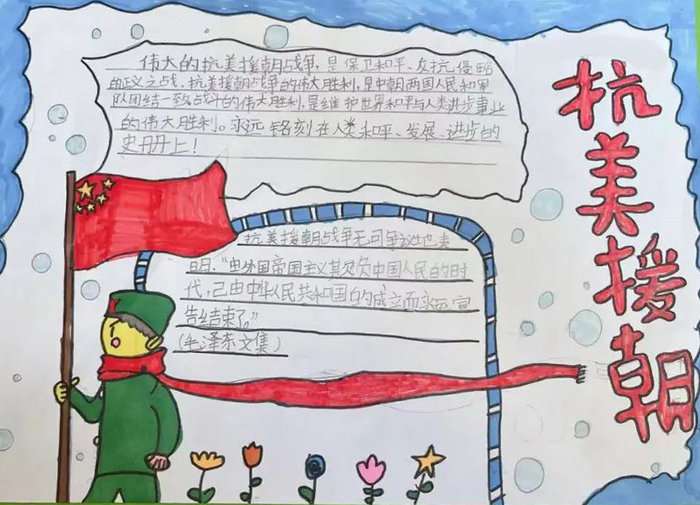 抗美援朝
伟大的抗美援朝战争,是保卫和平、反抗侵略
的正义之战、抗美援朝战争的伟大胜利,是中朝两国人民和军
队团结一致战斗的伟大胜利,是维护世界和平与人类进步事业
的伟大胜利。永远铭刻在人类和平、发展、进步的
史册上!
抗美援朝战争无可争议地表
明、“由外国帝国主义欺负中国人民的时
代,已由中华人民共和国的成立而永远宣
告结束了。”
(毛泽东文集)